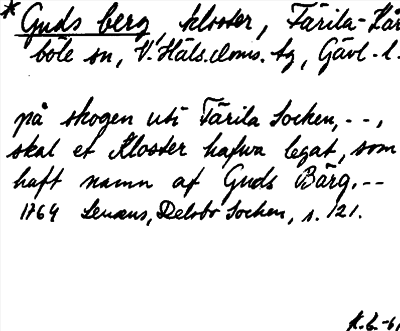 * Guds berg, kloster, Färila-Kår
böle sn, V. Häls. doms. tg, Gävl. l.
på skogen uti Färila Socken, - - ,
skal et Kloster hafwa legat, som
haft namn af Guds Bärg. - -
1764 Lenæus, Delsbo Socken, s. 121.